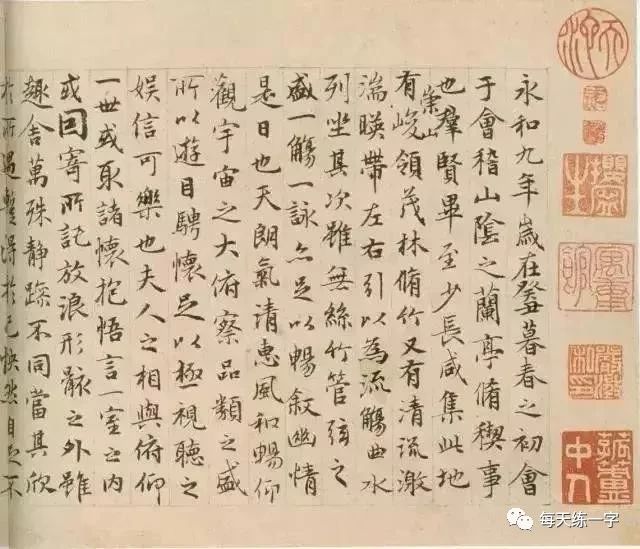 永和九年歲在癸丑暮春之初會
于會稽山陰之蘭亭脩稧事
也羣賢畢至少長咸集此地
有崇山峻領茂林脩竹又有清流激
湍暎帶左右引以為流觴曲水
列坐其次雖無絲竹管弦之
盛一觴一詠亦足以暢敘幽情
是日也天朗氣清惠風和暢仰
觀宇宙之大俯察品類之盛
所以遊目騁懷足以極視聽之
娛信可樂也夫人之相與俯仰
一世或取諸懷抱悟言一室之內
或因寄所託放浪形骸之外雖
趣舍萬殊靜躁不同當其欣
於所遇暫得於己怏然自足不
每天练一字